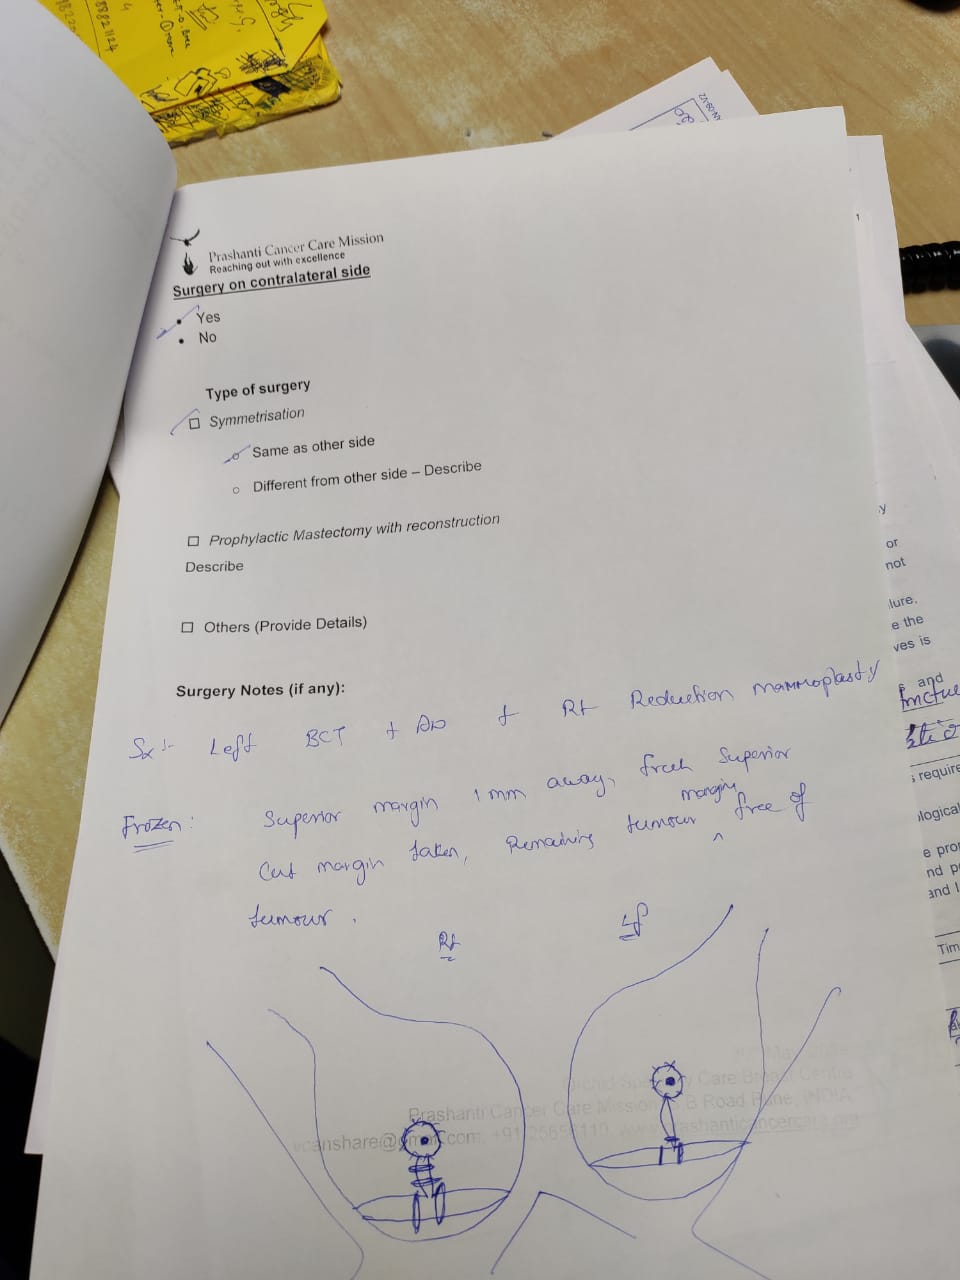 Prashanti Cancer Care Mission
Reaching out with excellence
Surgery on contralateral side
• Yes
• No
Type of surgery
□ Symmetrisation
o Same as other side
o Different from other side – Describe
□ Prophylactic Mastectomy with reconstruction
Describe
□ Others (Provide Details)
Surgery Notes (if any):
Sx :- Left BCT + AD + Rt Reduction mammoplasty
Frozen: Superior margin 1 mm away, fresh superior
cut margin taken, Remaining tumour margin free of
tumour.
Rt
Lf
Prashanti Cancer Care Mission, B Road Pune, INDIA
y
or
not
lure.
e the
ves is
and
s require
logical
e pro
nd p
and l
Tim